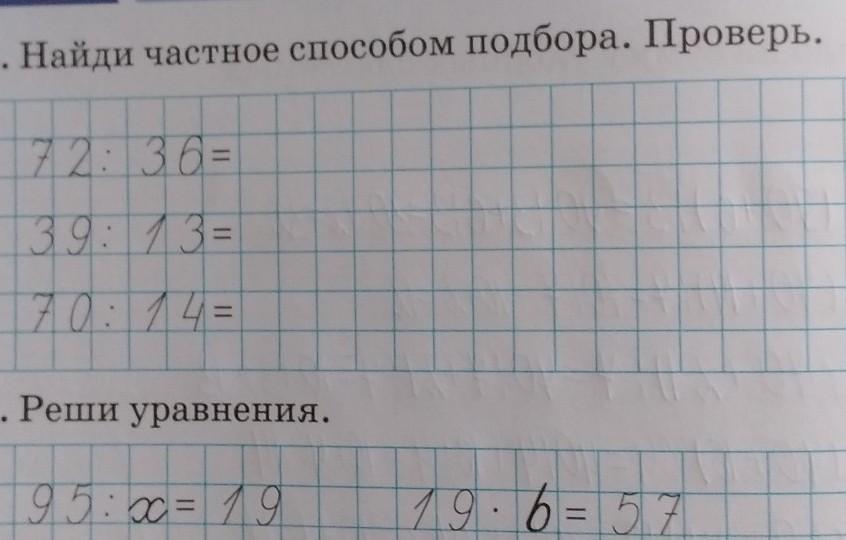 . Найди частное способом подбора. Проверь.
72 : 36 =
39 : 13 =
70 : 14 =
. Реши уравнения.
95 : x = 19 19 · b = 57